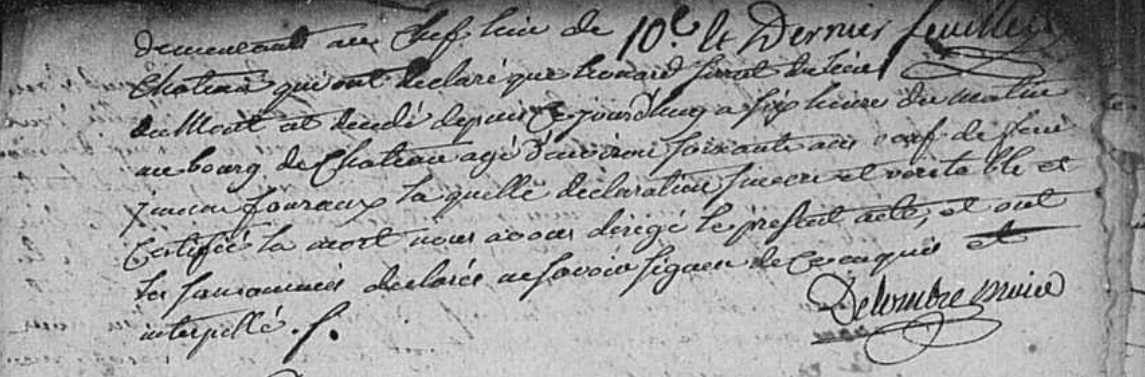 demeurant au Chef lieu de 10.e et Dernier feuillet
Chateau qui ont declaré que Leonard
du Mont est decedé depuis ce jourd'huy a six heure du matin
au bourg de Chateau agé d'environ soixante ans veuf de feue
fouraux la quelle declaration sincere et veritable et
Certifié la mort nous avons dirigé le present acte, et ont
les susnommés declarés ne savoir signer de ce enquis et
interpellé .
Delombre maire